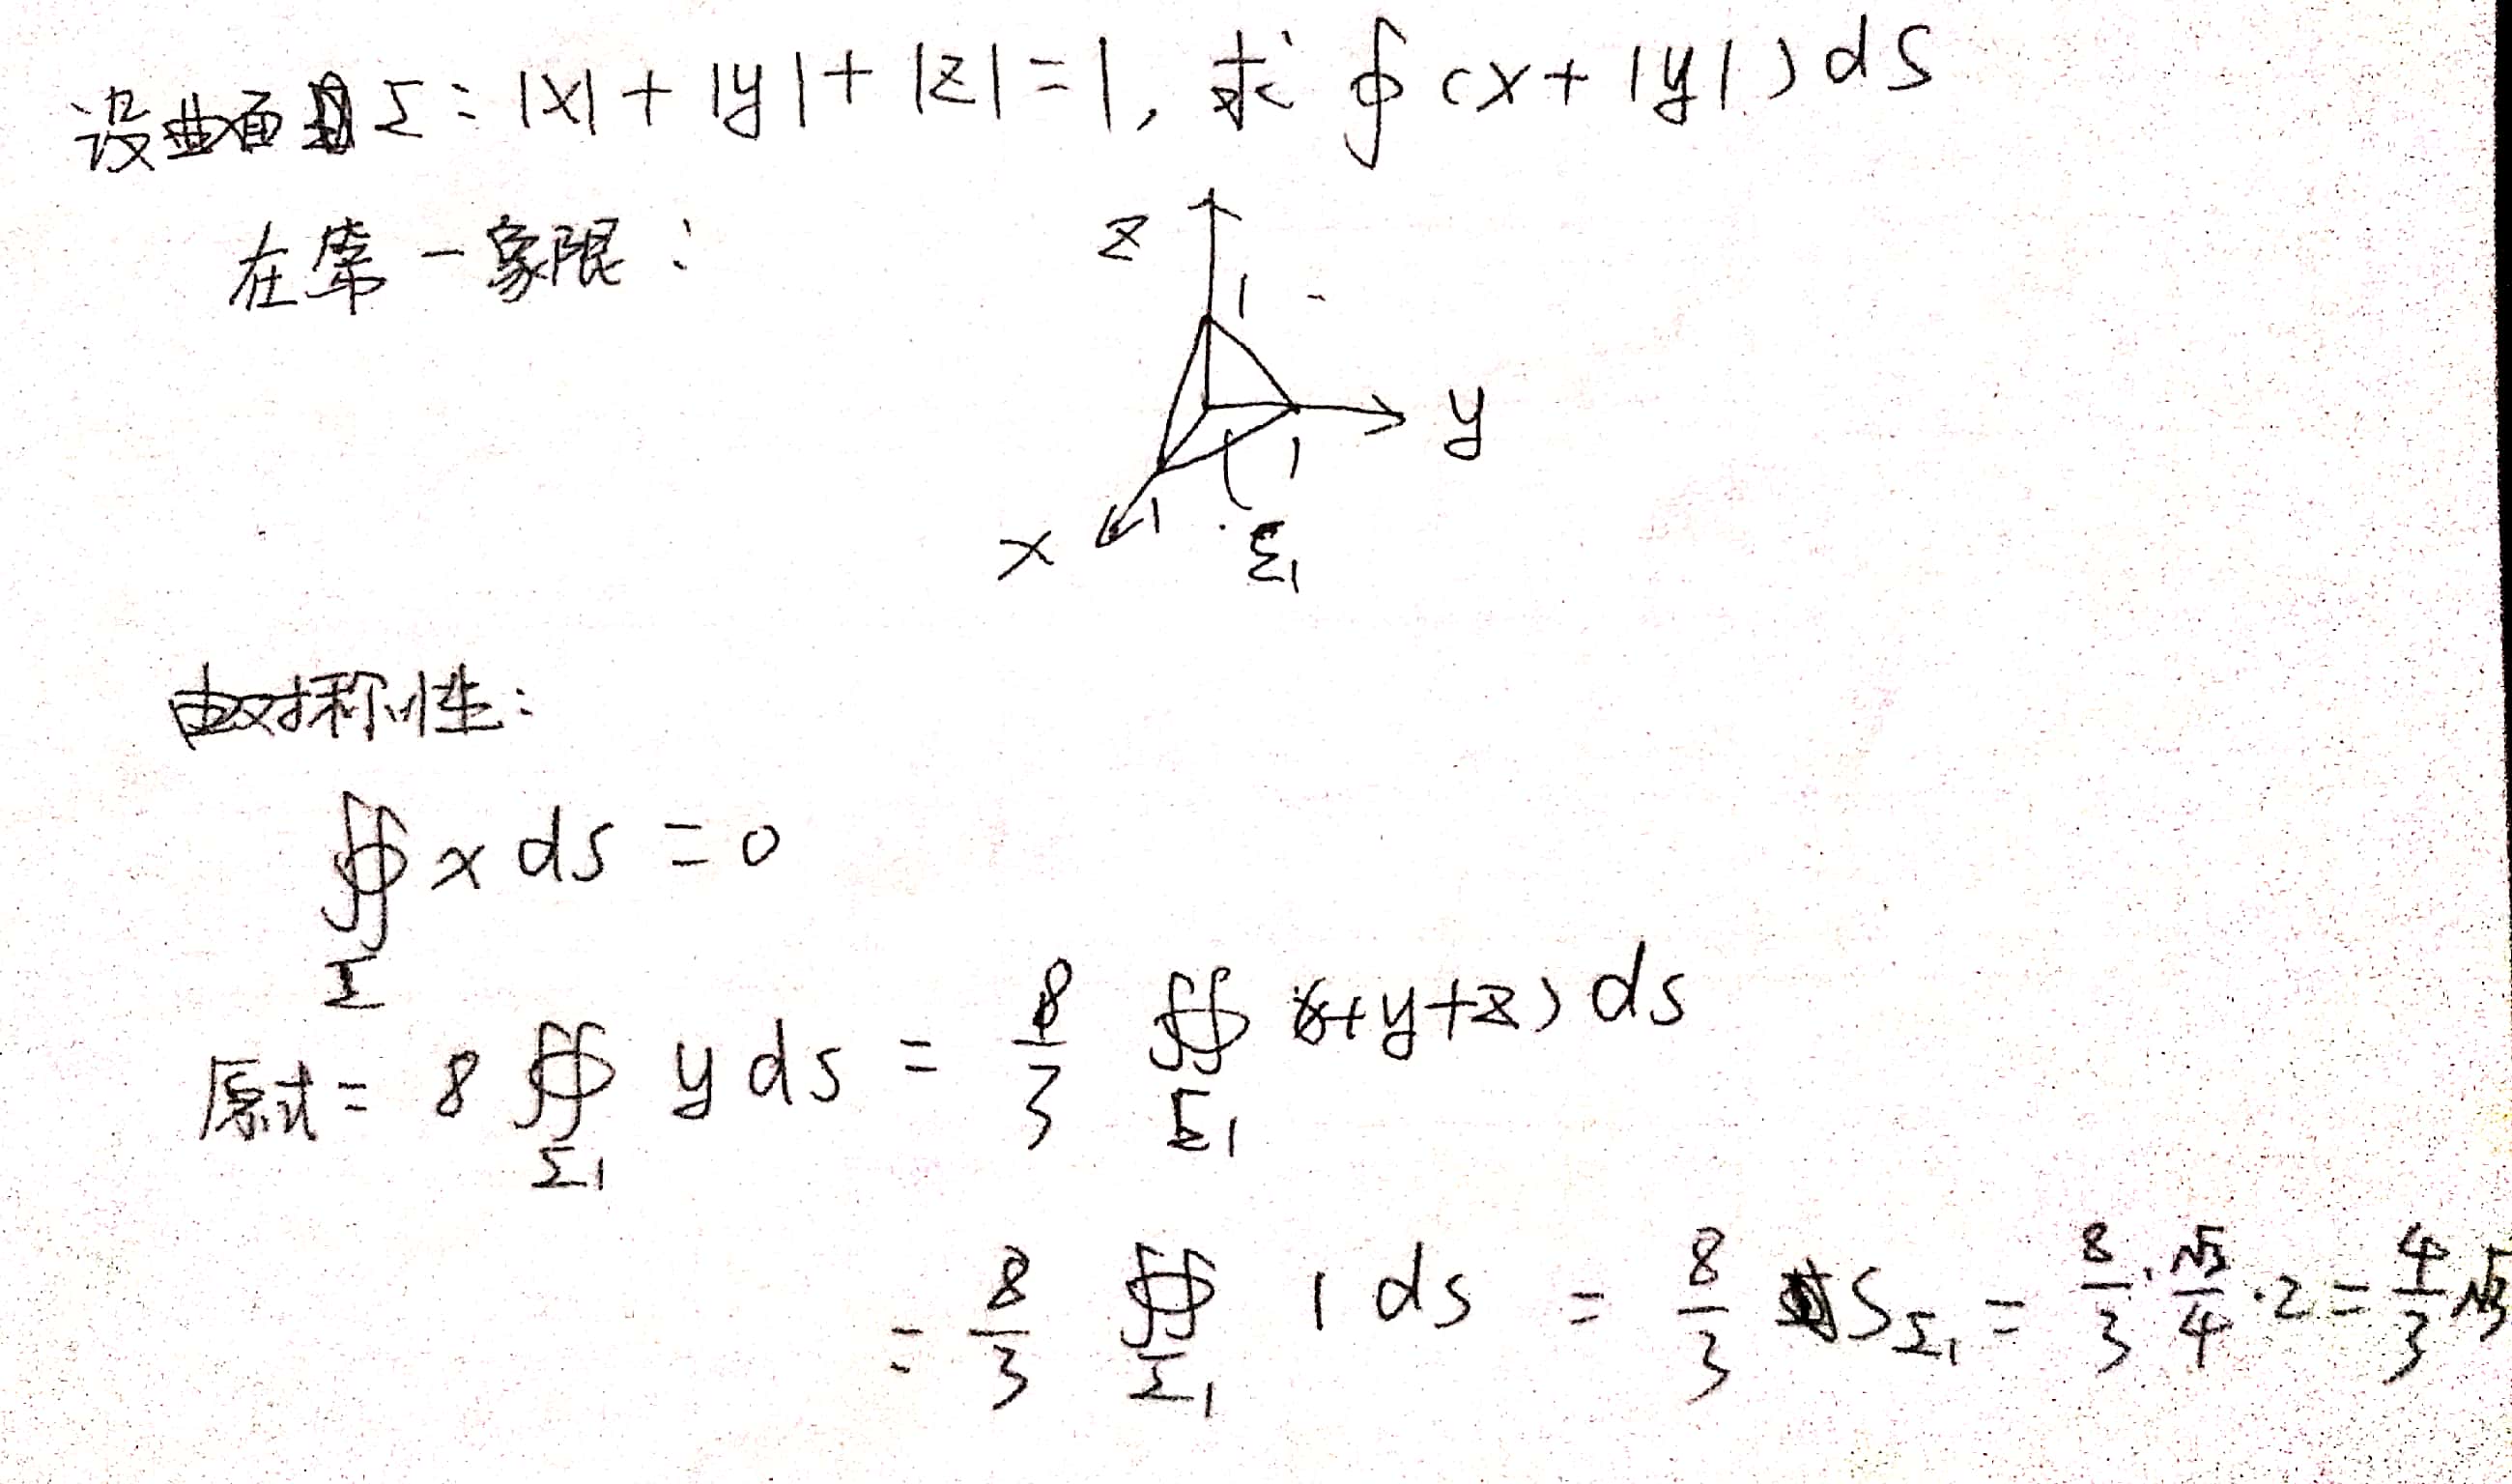 设曲面Σ: |x|+|y|+|z|=1, 求 ∮(x+|y|)dS
在第一象限:
z
1
y
1
x
1
Σ₁
由对称性:
∯_Σ x ds = 0
原式 = 8 ∯_Σ₁ y ds = 8/3 ∯_Σ₁ (x+y+z) ds
= 8/3 ∯_Σ₁ 1 ds = 8/3 S_Σ₁ = 8/3 · √3/4 · 2 = 4/3 √3